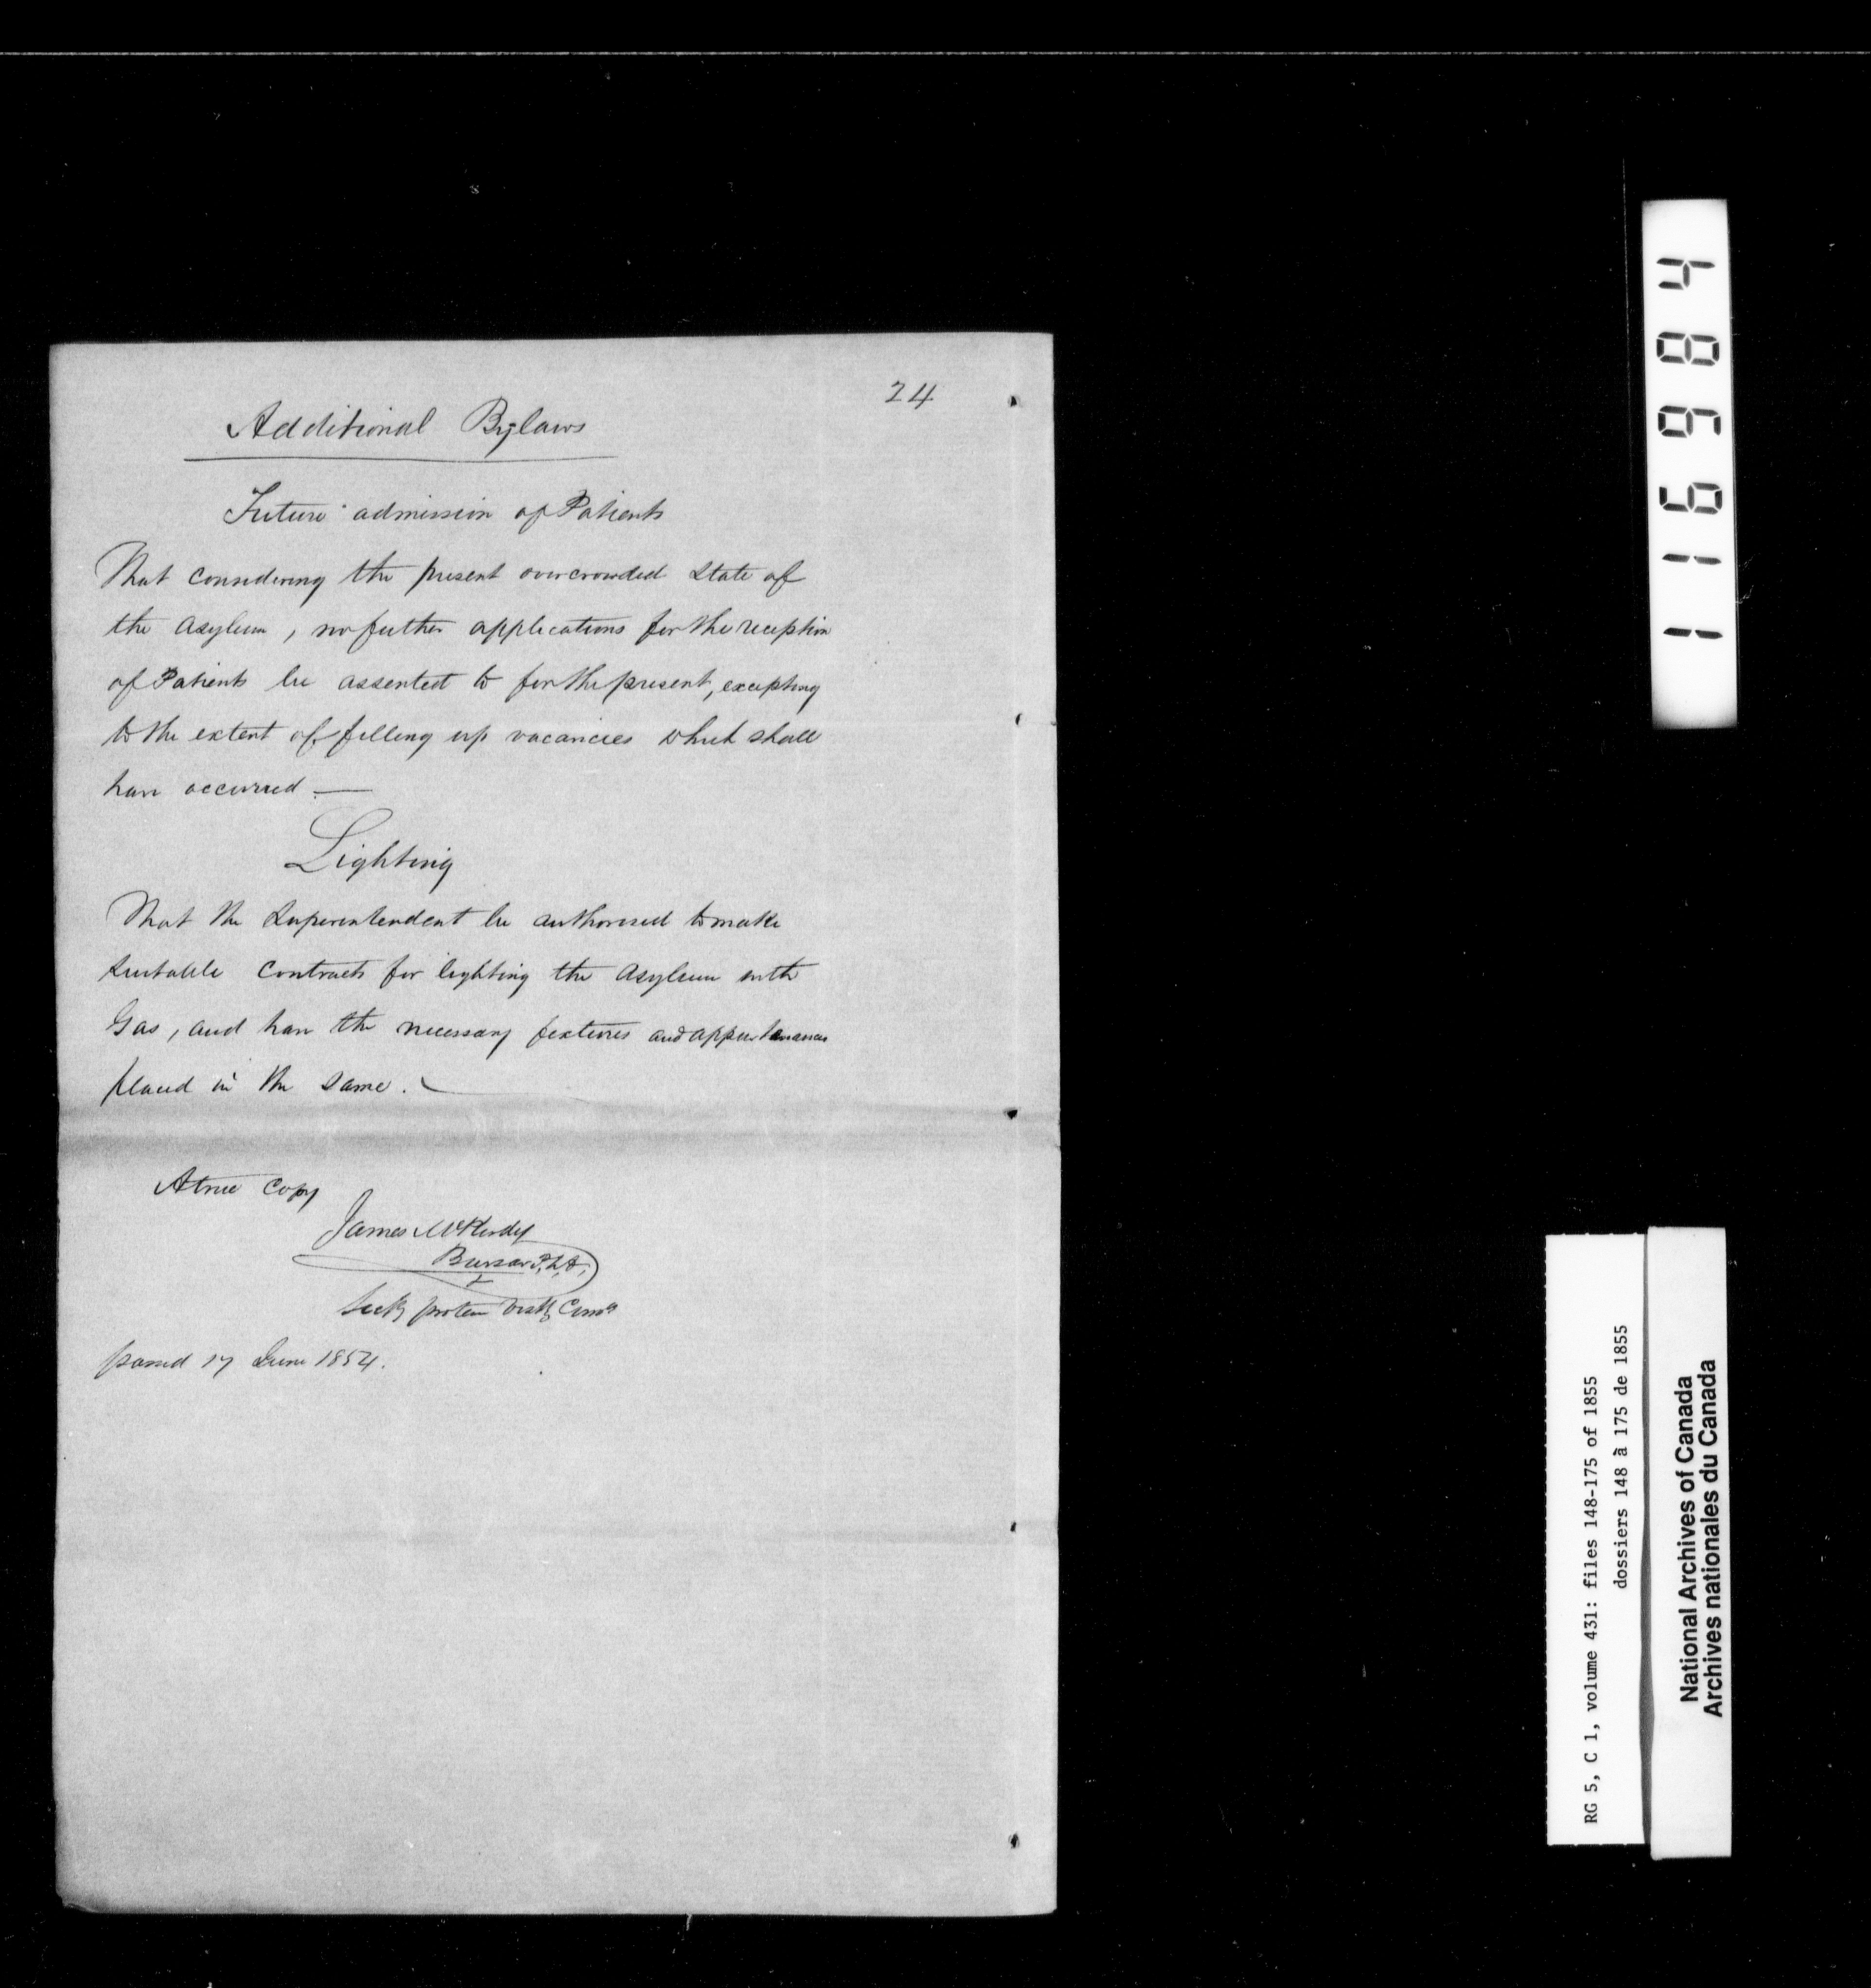 24
Additional Bylaws
Future admission of Patients
That considering the present overcrowded State of
the Asylum, no further applications for the reception
of Patients be assented to for the present, excepting
to the extent of filling up vacancies which shall
have occurred —
Lighting
That the Superintendent be authorised to make
suitable contracts for lighting the Asylum with
Gas, and have the necessary fixtures and appurtenances
placed in the same.
A true Copy
James McKirdy
Bursar P.L.A.
Secty protem Visitg Commrs
passed 17 June 1854.
116984
RG 5, C 1, volume 431: files 148-175 of 1855
dossiers 148 à 175 de 1855
National Archives of Canada
Archives nationales du Canada